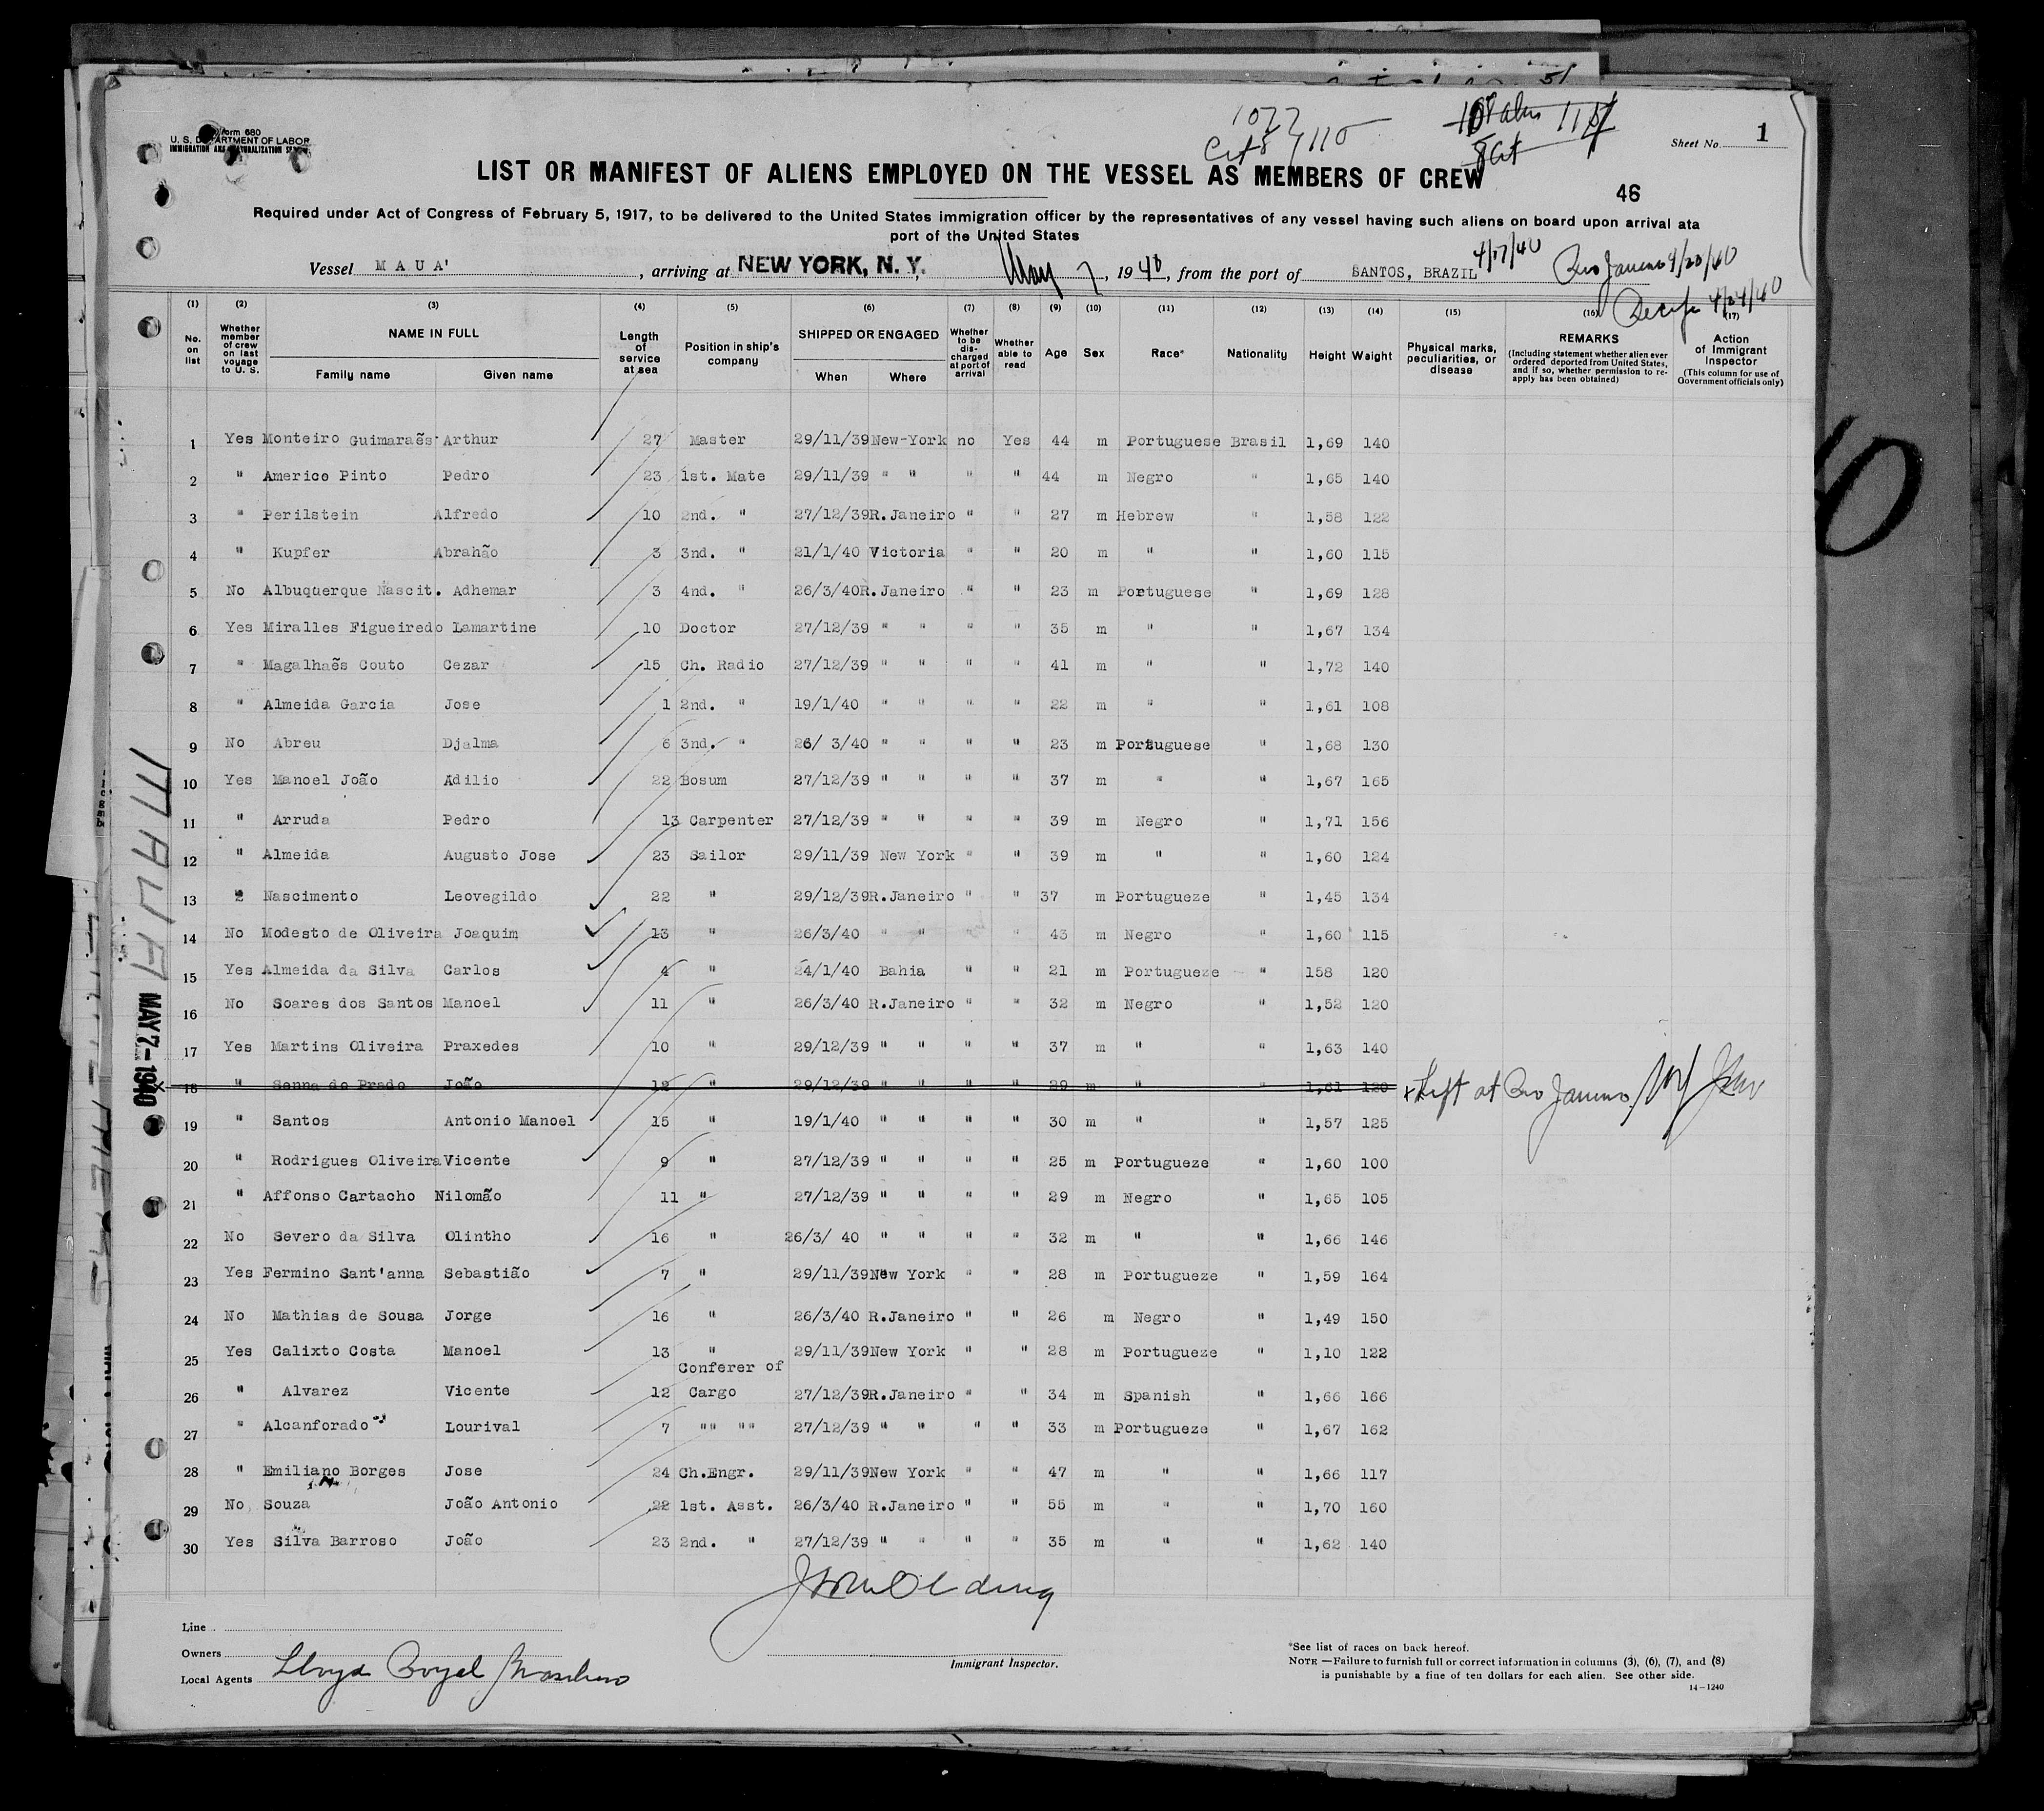 Form 680
U. S. DEPARTMENT OF LABOR
IMMIGRATION AND NATURALIZATION SERVICE
1077
Cit 8 / 1115
Sheet No. 1
LIST OR MANIFEST OF ALIENS EMPLOYED ON THE VESSEL AS MEMBERS OF CREW
46
Required under Act of Congress of February 5, 1917, to be delivered to the United States immigration officer by the representatives of any vessel having such aliens on board upon arrival at a
port of the United States
Vessel MAUA', arriving at NEW YORK, N. Y., May 7, 1940, from the port of SANTOS, BRAZIL 4/17/40 Rio Janeiro 4/20/40
Recife 4/24/40
(1) (2) (3) (4) (5) (6) (7) (8) (9) (10) (11) (12) (13) (14) (15) (16) (17)
No. on list
Whether member of crew on last voyage to U. S.
NAME IN FULL
Family name Given name
Length of service at sea
Position in ship's company
SHIPPED OR ENGAGED
When Where
Whether to be discharged at port of arrival
Whether able to read
Age
Sex
Race*
Nationality
Height
Weight
Physical marks, peculiarities, or disease
REMARKS
(Including statement whether alien ever ordered deported from United States, and if so, whether permission to reapply has been obtained)
Action of Immigrant Inspector
(This column for use of Government officials only)
1 Yes Monteiro Guimaraẽs Arthur 27 Master 29/11/39 New-York no Yes 44 m Portuguese Brasil 1,69 140
2 " Americo Pinto Pedro 23 1st. Mate 29/11/39 " " " " 44 m Negro " 1,65 140
3 " Perilstein Alfredo 10 2nd. " 27/12/39 R.Janeiro " " 27 m Hebrew " 1,58 122
4 " Kupfer Abrahão 3 3nd. " 21/1/40 Victoria " " 20 m " " 1,60 115
5 No Albuquerque Nascit. Adhemar 3 4nd. " 26/3/40 R.Janeiro " " 23 m Portuguese " 1,69 128
6 Yes Miralles Figueiredo Lamartine 10 Doctor 27/12/39 " " " " 35 m " " 1,67 134
7 " Magalhaẽs Couto Cezar 15 Ch. Radio 27/12/39 " " " " 41 m " " 1,72 140
8 " Almeida Garcia Jose 1 2nd. " 19/1/40 " " " " 22 m " " 1,61 108
9 No Abreu Djalma 6 3nd. " 26/ 3/40 " " " " 23 m Portuguese " 1,68 130
10 Yes Manoel João Adilio 22 Bosum 27/12/39 " " " " 37 m " " 1,67 165
11 " Arruda Pedro 13 Carpenter 27/12/39 " " " " 39 m Negro " 1,71 156
12 " Almeida Augusto Jose 23 Sailor 29/11/39 New York " " 39 m " " 1,60 124
13 " Nascimento Leovegildo 22 " 29/12/39 R.Janeiro " " 37 m Portugueze " 1,45 134
14 No Modesto de Oliveira Joaquim 13 " 26/3/40 " " " " 43 m Negro " 1,60 115
15 Yes Almeida da Silva Carlos 4 " 24/1/40 Bahia " " 21 m Portugueze " 158 120
16 No Soares dos Santos Manoel 11 " 26/3/40 R.Janeiro " " 32 m Negro " 1,52 120
17 Yes Martins Oliveira Praxedes 10 " 29/12/39 " " " " 37 m " " 1,63 140
18 " Senna do Prado João 12 " 29/12/39 29 m " " 1,61 120 x Left at Rio Janeiro
19 " Santos Antonio Manoel 15 " 19/1/40 " " " " 30 m " " 1,57 125
20 " Rodrigues Oliveira Vicente 9 " 27/12/39 " " " " 25 m Portugueze " 1,60 100
21 " Affonso Cartacho Nilomão 11 " 27/12/39 " " " " 29 m Negro " 1,65 105
22 No Severo da Silva Olintho 16 " 26/3/ 40 " " " " 32 m " " 1,66 146
23 Yes Fermino Sant'anna Sebastião 7 " 29/11/39 New York " " 28 m Portugueze " 1,59 164
24 No Mathias de Sousa Jorge 16 " 26/3/40 R.Janeiro " " 26 m Negro " 1,49 150
25 Yes Calixto Costa Manoel 13 " 29/11/39 New York " " 28 m Portugueze " 1,10 122
26 " Alvarez Vicente 12 Conferer of Cargo 27/12/39 R.Janeiro " " 34 m Spanish " 1,66 166
27 " Alcanforado Lourival 7 "" "" 27/12/39 " " " " 33 m Portugueze " 1,67 162
28 " Emiliano Borges Jose 24 Ch.Engr. 29/11/39 New York " " 47 m " " 1,66 117
29 No Souza João Antonio 22 1st. Asst. 26/3/40 R.Janeiro " " 55 m " " 1,70 160
30 Yes Silva Barroso João 23 2nd. " 27/12/39 " " " " 35 m " " 1,62 140
MAUA
MAY 7-1940
Line
Owners
Local Agents Lloyd
Immigrant Inspector.
*See list of races on back hereof.
NOTE—Failure to furnish full or correct information in columns (3), (6), (7), and (8)
is punishable by a fine of ten dollars for each alien. See other side.
14-1240